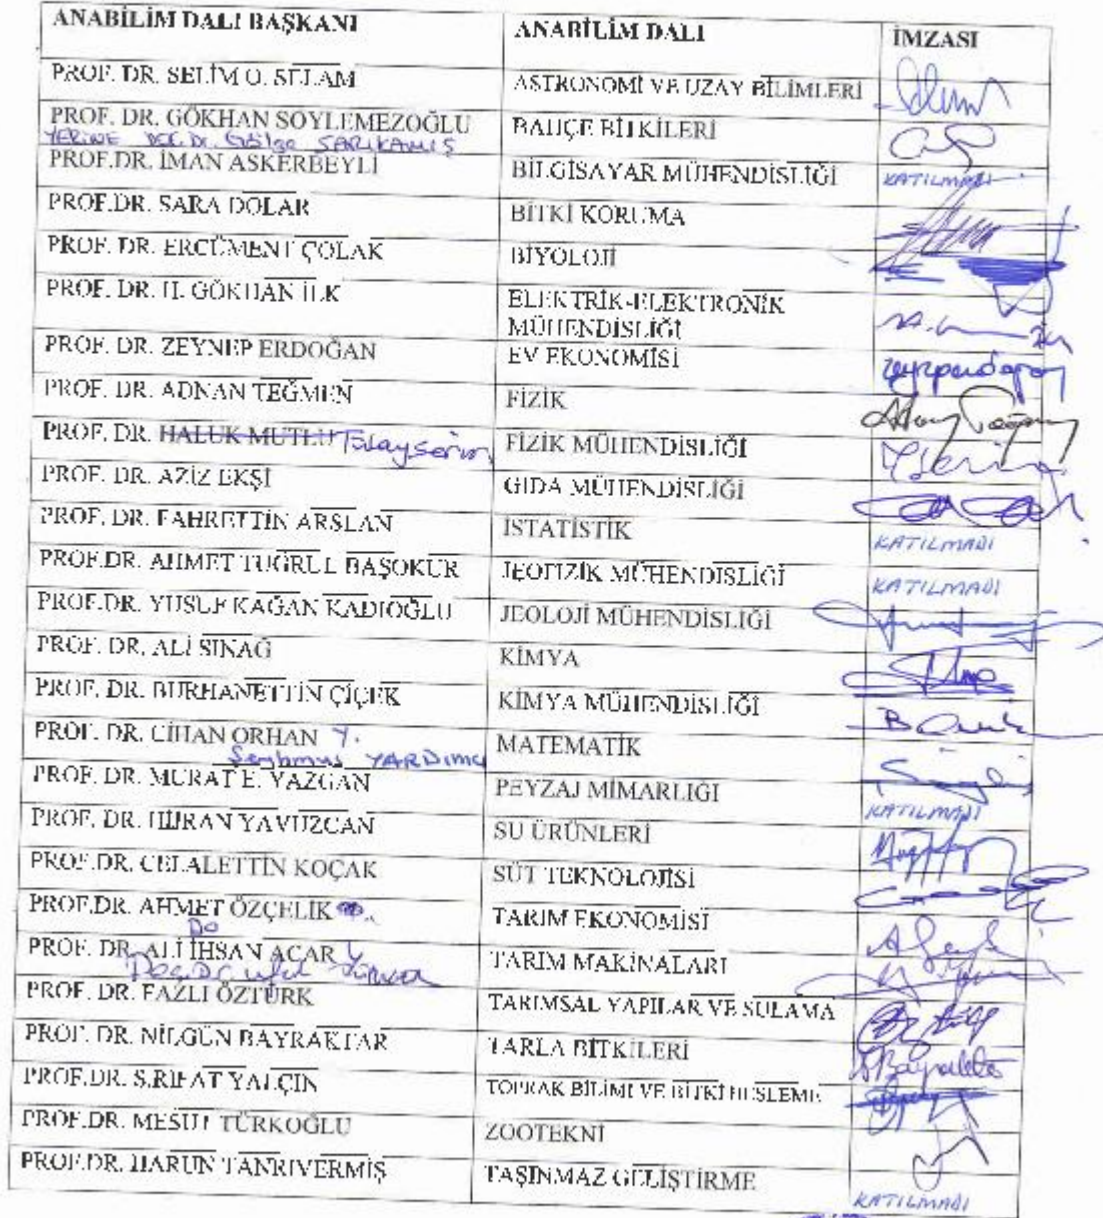 ANABİLİM DALI BAŞKANI ANABİLİM DALI İMZASI
PROF. DR. SELİM O. SELAM ASTRONOMİ VE UZAY BİLİMLERİ
PROF. DR. GÖKHAN SÖYLEMEZOĞLU BAHÇE BİTKİLERİ
YERİNE DOÇ. Dr. Gölge SARIKAMIŞ
PROF.DR. İMAN ASKERBEYLİ BİLGİSAYAR MÜHENDİSLİĞİ KATILMADI
PROF.DR. SARA DOLAR BİTKİ KORUMA
PROF. DR. ERCÜMENT ÇOLAK BİYOLOJİ
PROF. DR. H. GÖKHAN İLK ELEKTRİK-ELEKTRONİK
MÜHENDİSLİĞİ
PROF. DR. ZEYNEP ERDOĞAN EV EKONOMİSİ
PROF. DR. ADNAN TEĞMEN FİZİK
PROF. DR. HALUK MUTLU FİZİK MÜHENDİSLİĞİ
PROF. DR. AZİZ EKŞİ GIDA MÜHENDİSLİĞİ
PROF. DR. FAHRETTİN ARSLAN İSTATİSTİK KATILMADI
PROF.DR. AHMET TUĞRUL BAŞOKUR JEOFİZİK MÜHENDİSLİĞİ KATILMADI
PROF.DR. YUSUF KAĞAN KADIOĞLU JEOLOJİ MÜHENDİSLİĞİ
PROF. DR. ALİ SINAĞ KİMYA
PROF. DR. BURHANETTİN ÇİÇEK KİMYA MÜHENDİSLİĞİ
PROF. DR. CİHAN ORHAN Y. MATEMATİK
Şeyhmus YARDIMCI
PROF. DR. MURAT E. YAZGAN PEYZAJ MİMARLIĞI KATILMADI
PROF. DR. HİJRAN YAVUZCAN SU ÜRÜNLERİ
PROF.DR. CELALETTİN KOÇAK SÜT TEKNOLOJİSİ
PROF.DR. AHMET ÖZÇELİK TARIM EKONOMİSİ
PROF. DR. ALİ İHSAN ACAR TARIM MAKİNALARI
PROF. DR. FAZLI ÖZTÜRK TARIMSAL YAPILAR VE SULAMA
PROF. DR. NİLGÜN BAYRAKTAR TARLA BİTKİLERİ
PROF.DR. S.RIFAT YALÇIN TOPRAK BİLİMİ VE BİTKİ BESLEME
PROF.DR. MESUT TÜRKOĞLU ZOOTEKNİ
PROF.DR. HARUN TANRIVERMİŞ TAŞINMAZ GELİŞTİRME KATILMADI